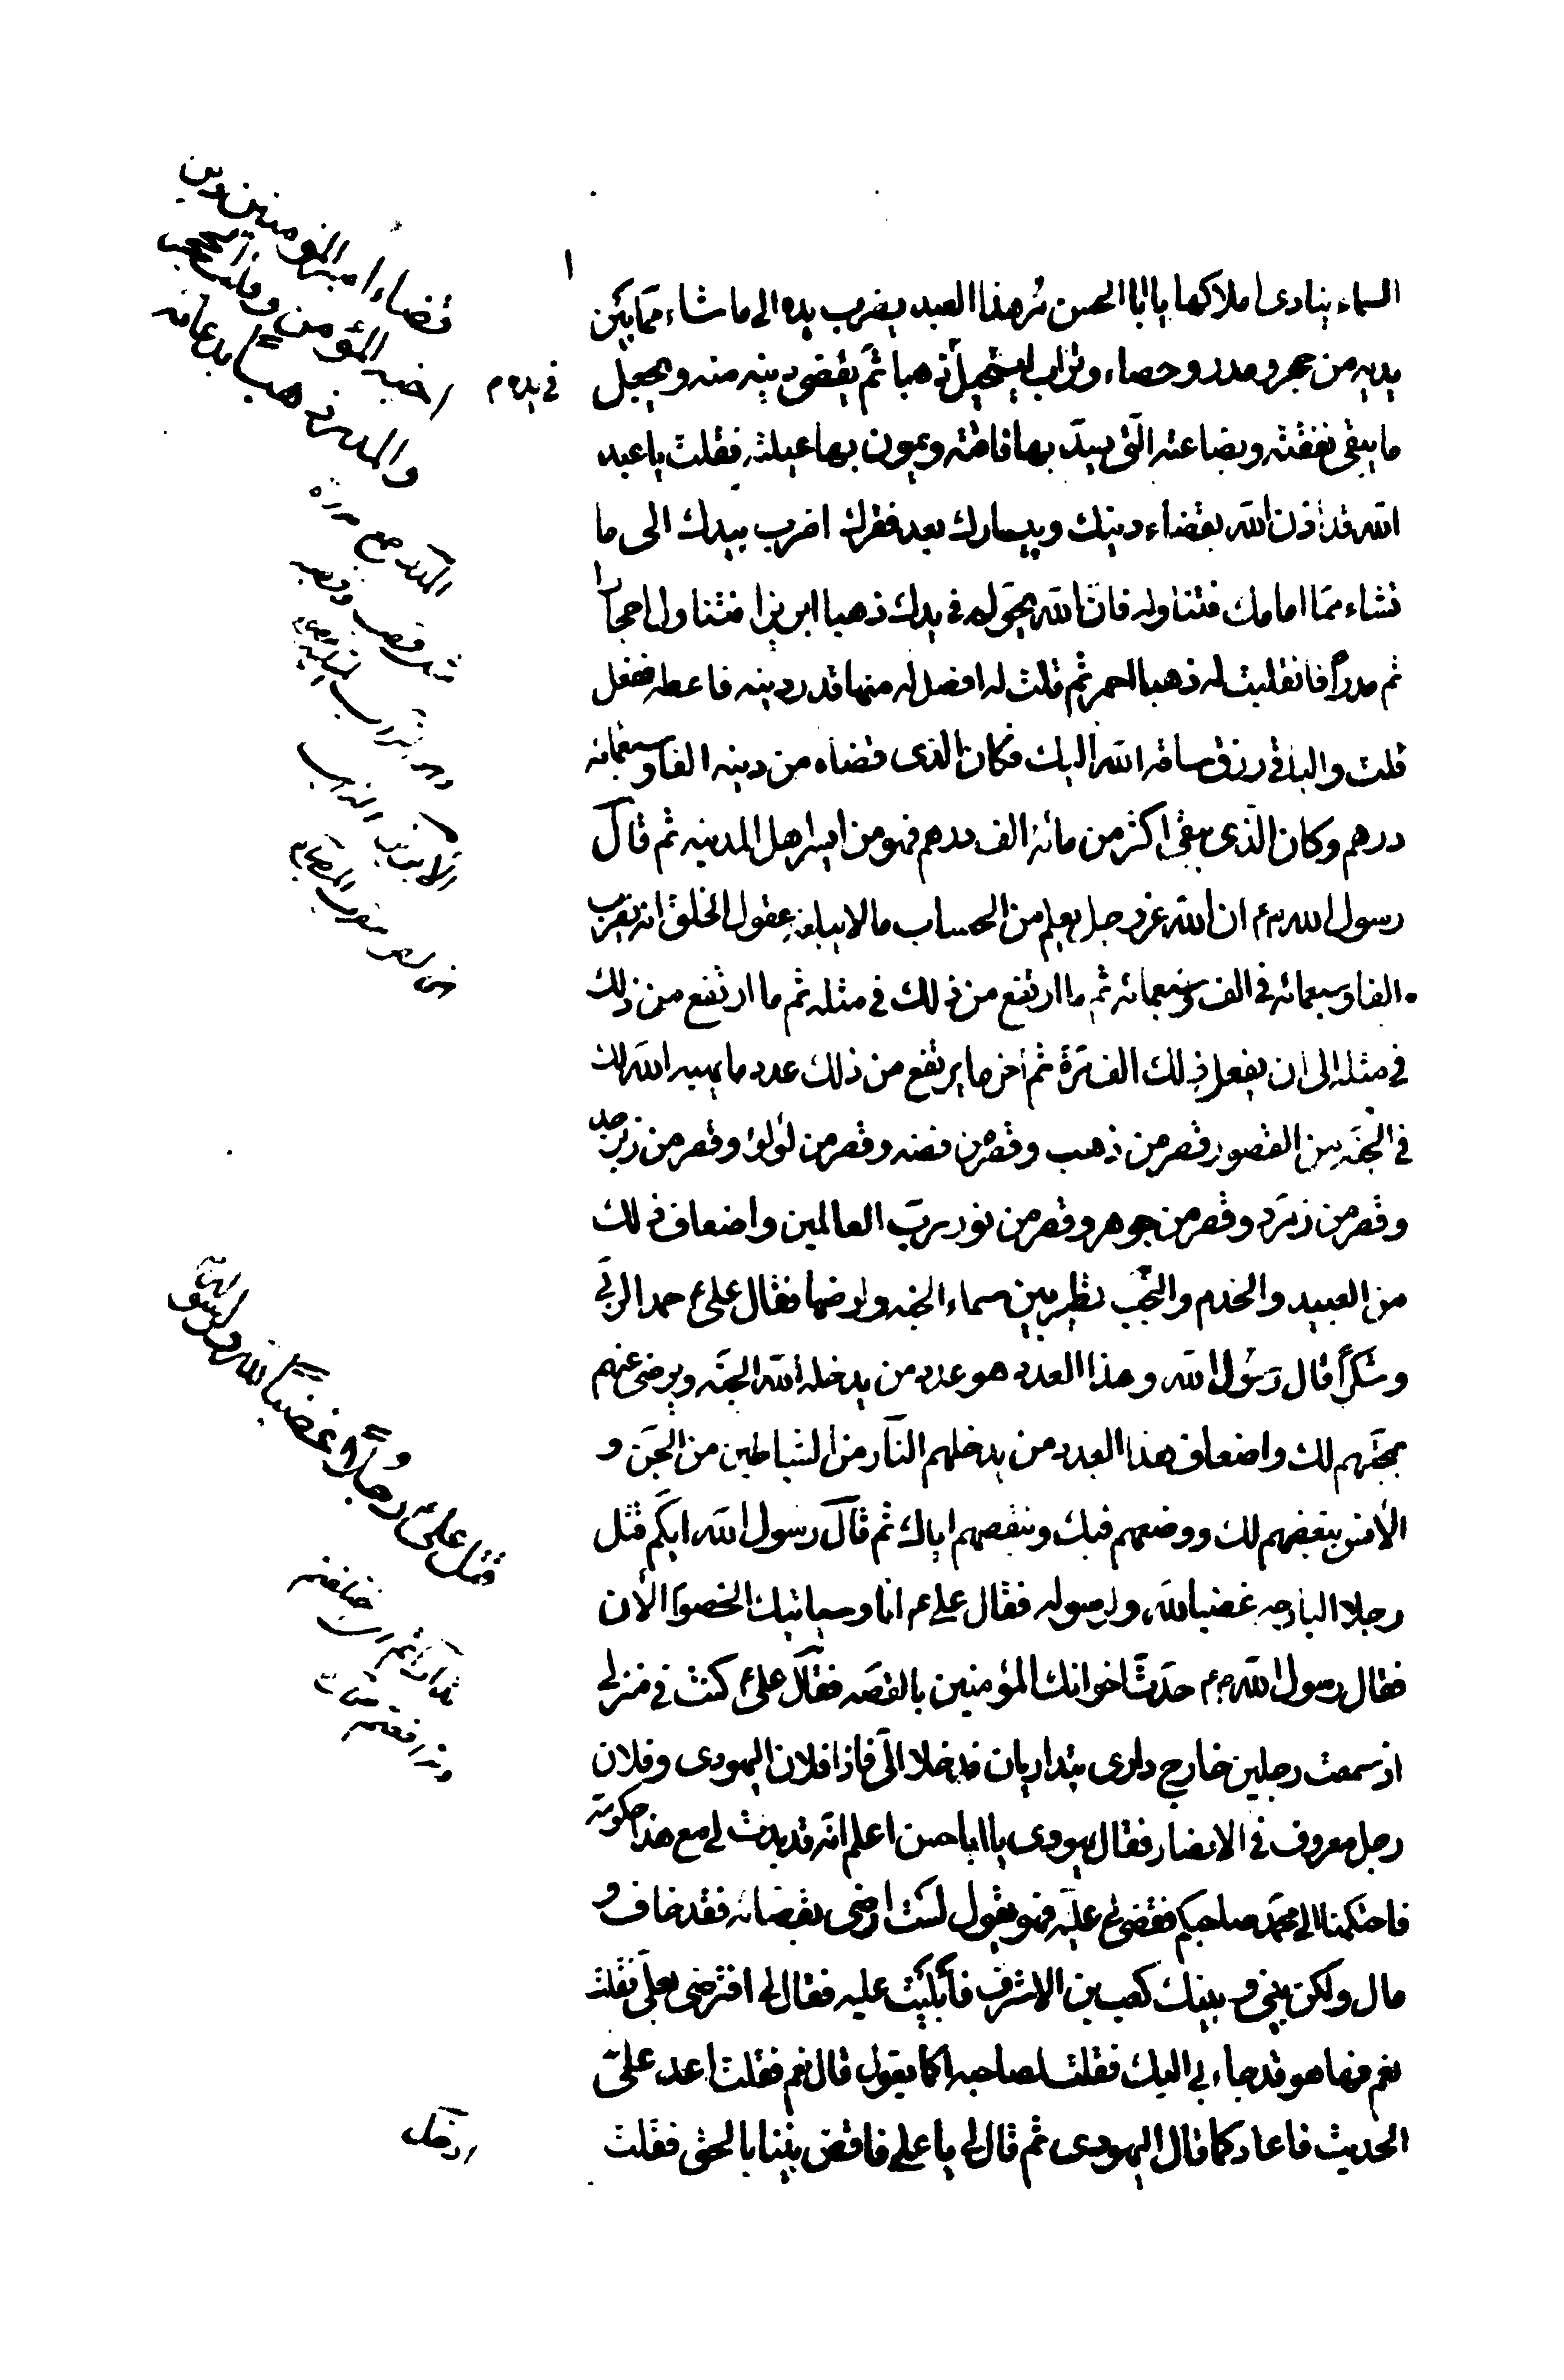 السماء ينادى املاكها يا ابا الحسن مر هذا العبد يضرب يده الى ما شاء مما بين
يديه من حجر ومدر وحصاء وتراب ليستحيل ذهبا ثم يقضى دينه منه ويجعل
ما يبقى نفقته وبضاعته التى يسد بها فاقته ويمون بها عيلته فقلت يا عبد
الله قد اذن الله بقضاء دينك ويسارك بعد فقرك اضرب بيدك الى ما
تشاء مما امامك فتناوله فان الله يحوله فى يدك ذهبا ابريزا فتناول احجارا
ثم مدرا فانقلبت له ذهبا احمر ثم قلت له افصل له منها قدر دينه فاعطه ففعل
قلت والباقى رزق ساقه الله اليك فكان الذى قضاه من دينه الفا وسبعمائه
درهم وكان الذى بقى اكثر من مائة الف درهم فهو من ايسر اهل المدينه ثم قال
رسول الله ص ان الله عز وجل يعلم من الحساب ما لا يبلغه عقول الخلق انه يضرب
الفا وسبعمائه فى الف وسبعمائه ثم ما ارتفع من ذلك فى مثله ثم ما ارتفع من ذلك
فى مثله الى ان يفعل ذلك الف مرة ثم اخر ما يرتفع من ذلك عدد ما يهبه الله لك
فى الجنه من القصور قصر من ذهب وقصر من فضه وقصر من لؤلؤ وقصر من زبرجد
وقصر من زمرد وقصر من جوهر وقصر من نور رب العالمين واضعاف ذلك
من العبيد والخدم والنجب تطير بين سماء الجنه وارضها فقال على ع حمدا لربى
وشكرا قال رسول الله وهذا العدد هو عدد من يدخله الله الجنه ويرضى عنهم
بمحبتهم لك واضعاف هذا العدد من يدخلهم النار من الشياطين من الجن و
الأنس ببغضهم لك ووضعهم فيك وتنقصهم اياك ثم قال رسول الله ايكم قتل
رجلا البارحه غضبا لله ولرسوله فقال على ع انا وسياتيك الخصوم الأن
فقال رسول الله ص حدث اخوانك المؤمنين بالقصه فقال على ع كنت فى منزلى
اذ سمعت رجلين خارج دارى يتداريان فدخلا الى فاذا فلان اليهودى وفلان
رجل معروف فى الانصار فقال يهودى يا ابا حسن اعلم انه قد بدت لى مع هذا حكومة
فاحتكمنا الى محمد صاحبكم فقضى لى عليه فهو يقول لست ارضى بقضائه فقد حاف و
مال ولكن بينى وبينك كعب بن الاشرف فأبيت عليه فقال لى افترضى بعلى فقلت
نعم فها هو قد جاء بى اليك فقلت لصاحبه اكما يقول قال نعم فقلت اعد على
الحديث فاعاد كما قال اليهودى ثم قال لى يا على فاقض بيننا بالحق فقلت
فى يده م
قضاء امير المؤمنين دين
اخيه المؤمن وقلب الحجر
والمدر ذهبا بدعائه
قتل على ع رجلا غضبا لله ولرسوله
ادخل